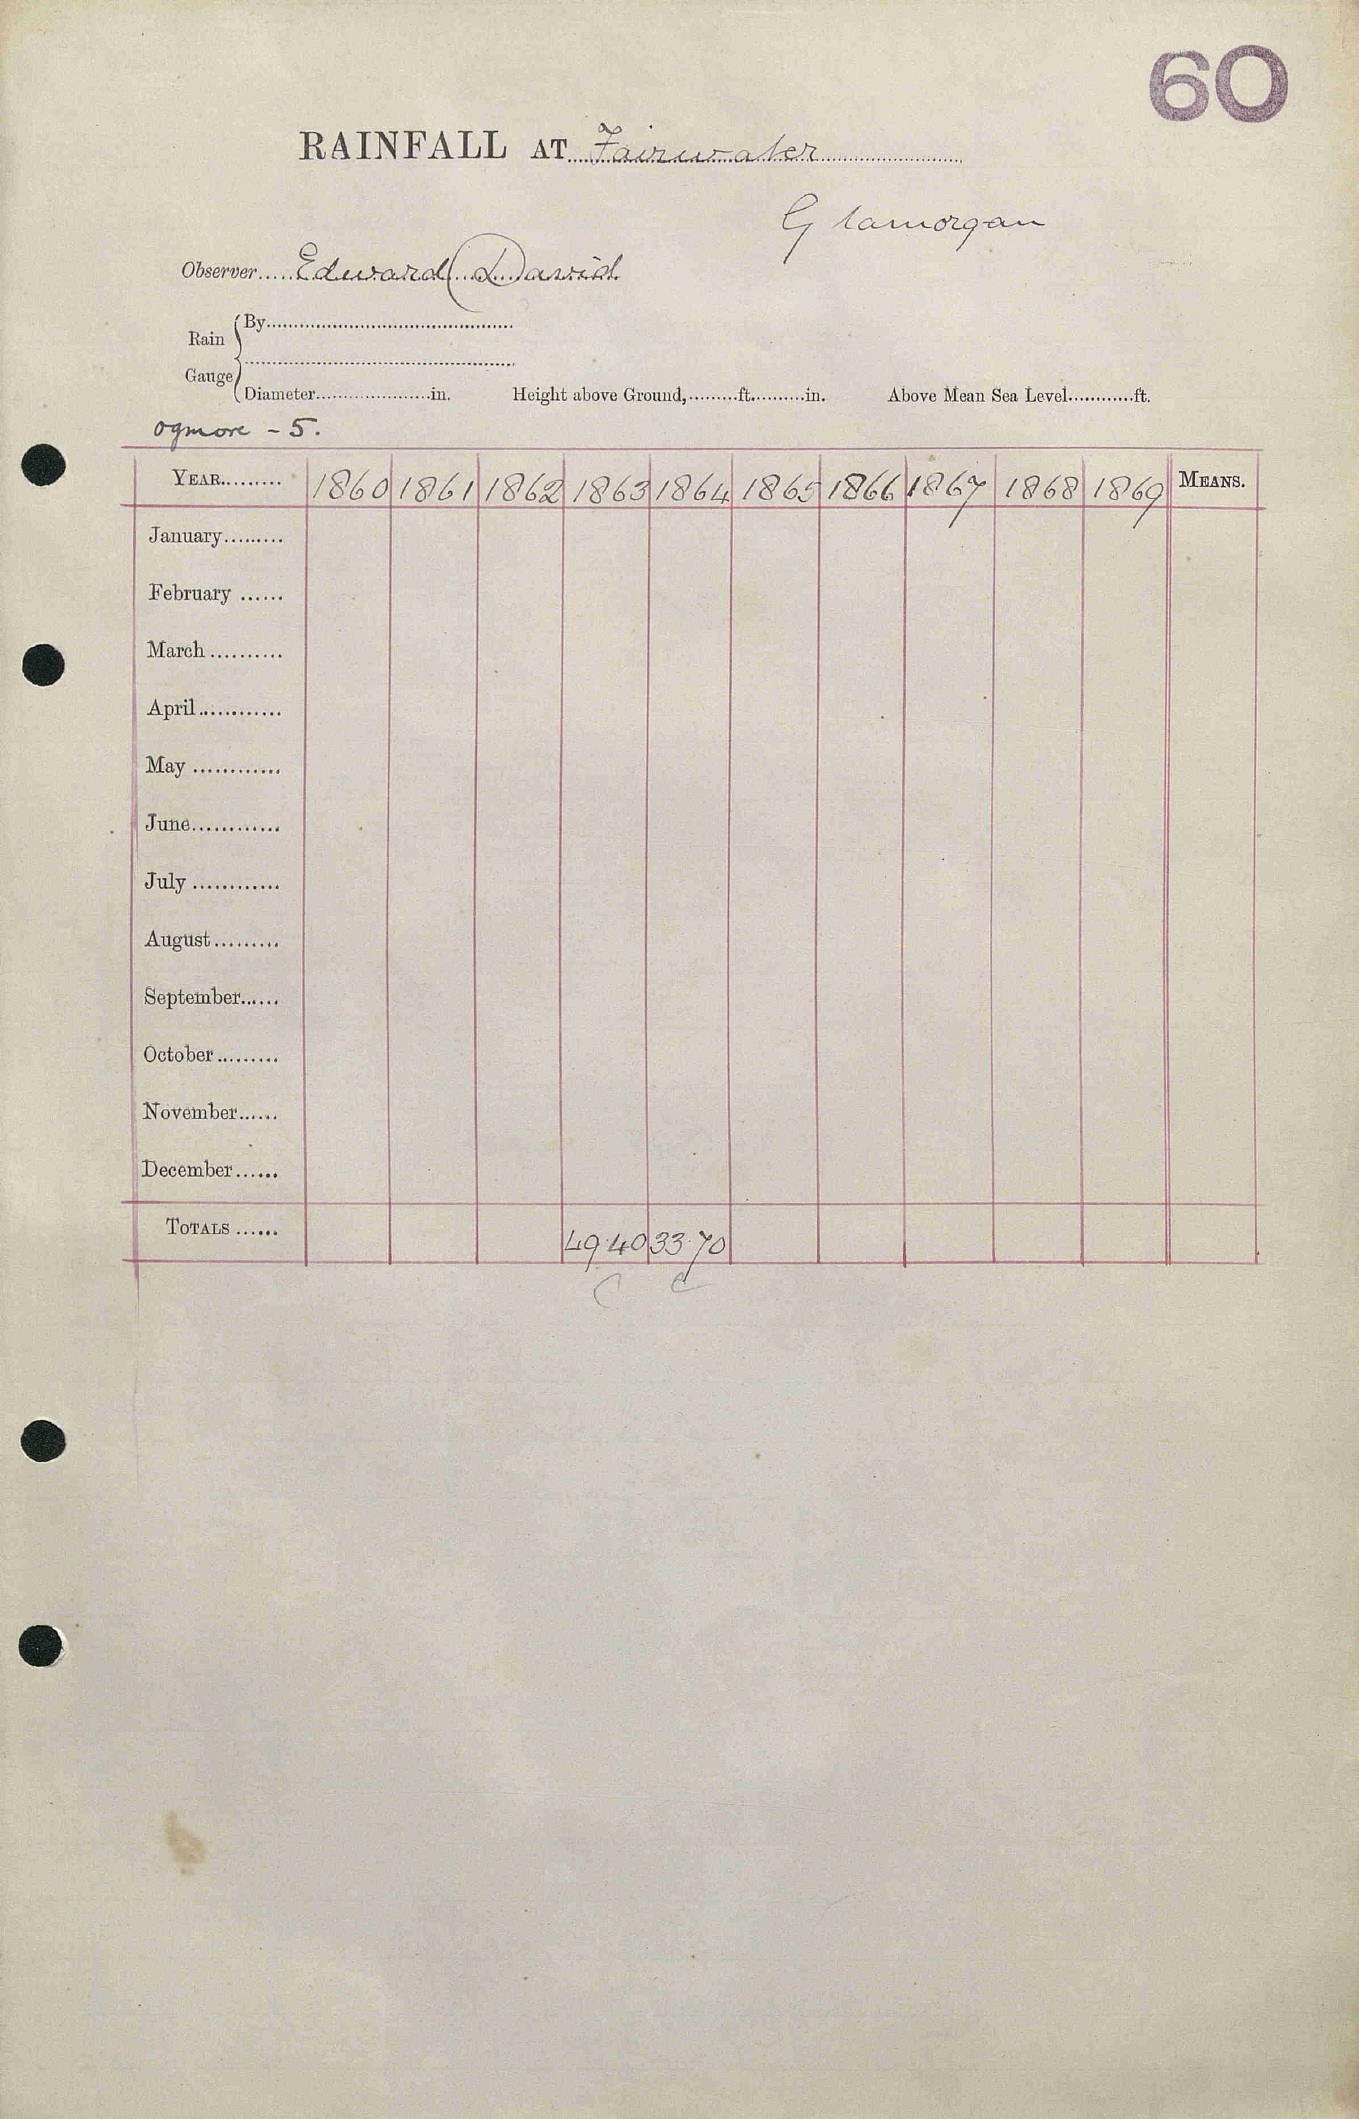 60
RAINFALL AT Fairwater
Glamorgan
Observer Edward David
Rain Gauge
By
Diameter in. Height above Ground, ft. in. Above Mean Sea Level ft.
Ogmore - 5.
YEAR 1860 1861 1862 1863 1864 1865 1866 1867 1868 1869 MEANS.
January
February
March
April
May
June
July
August
September
October
November
December
TOTALS 49.40 33.70
C C